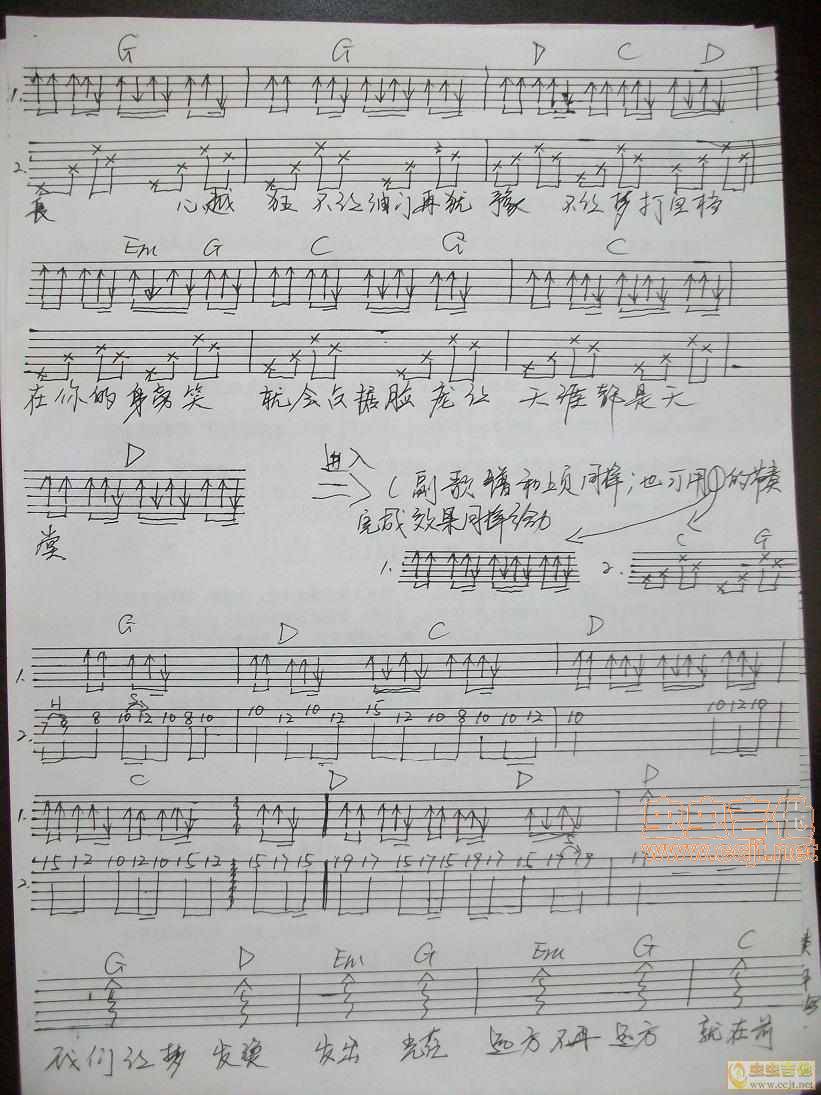 G G D C D
1.
2.
長 心越 狂 不让绅们再犹 豫 不让梦打回档
Em G C G C
在你的身旁笑 就会占据脸 庞让 天涯都是天
D
堂
进入
(副歌谱和上页同样;也可用①的节奏
完成效果同样给力
1. 2. C G
G D C D
1.
H S
2. 7 9 8 10 12 10 8 10 10 12 10 12 15 12 10 8 10 10 12 10 10 12 10
C D D D
1.
15 12 10 12 10 15 12 15 17 15 19 17 15 17 15 19 17 15 17 19 17
2.
虫虫吉他
www.ccjt.net
G D Em G Em G C
我们让梦 发烫 发出 光茫 远方不再 远方 就在前
虫虫吉他
www.ccjt.net